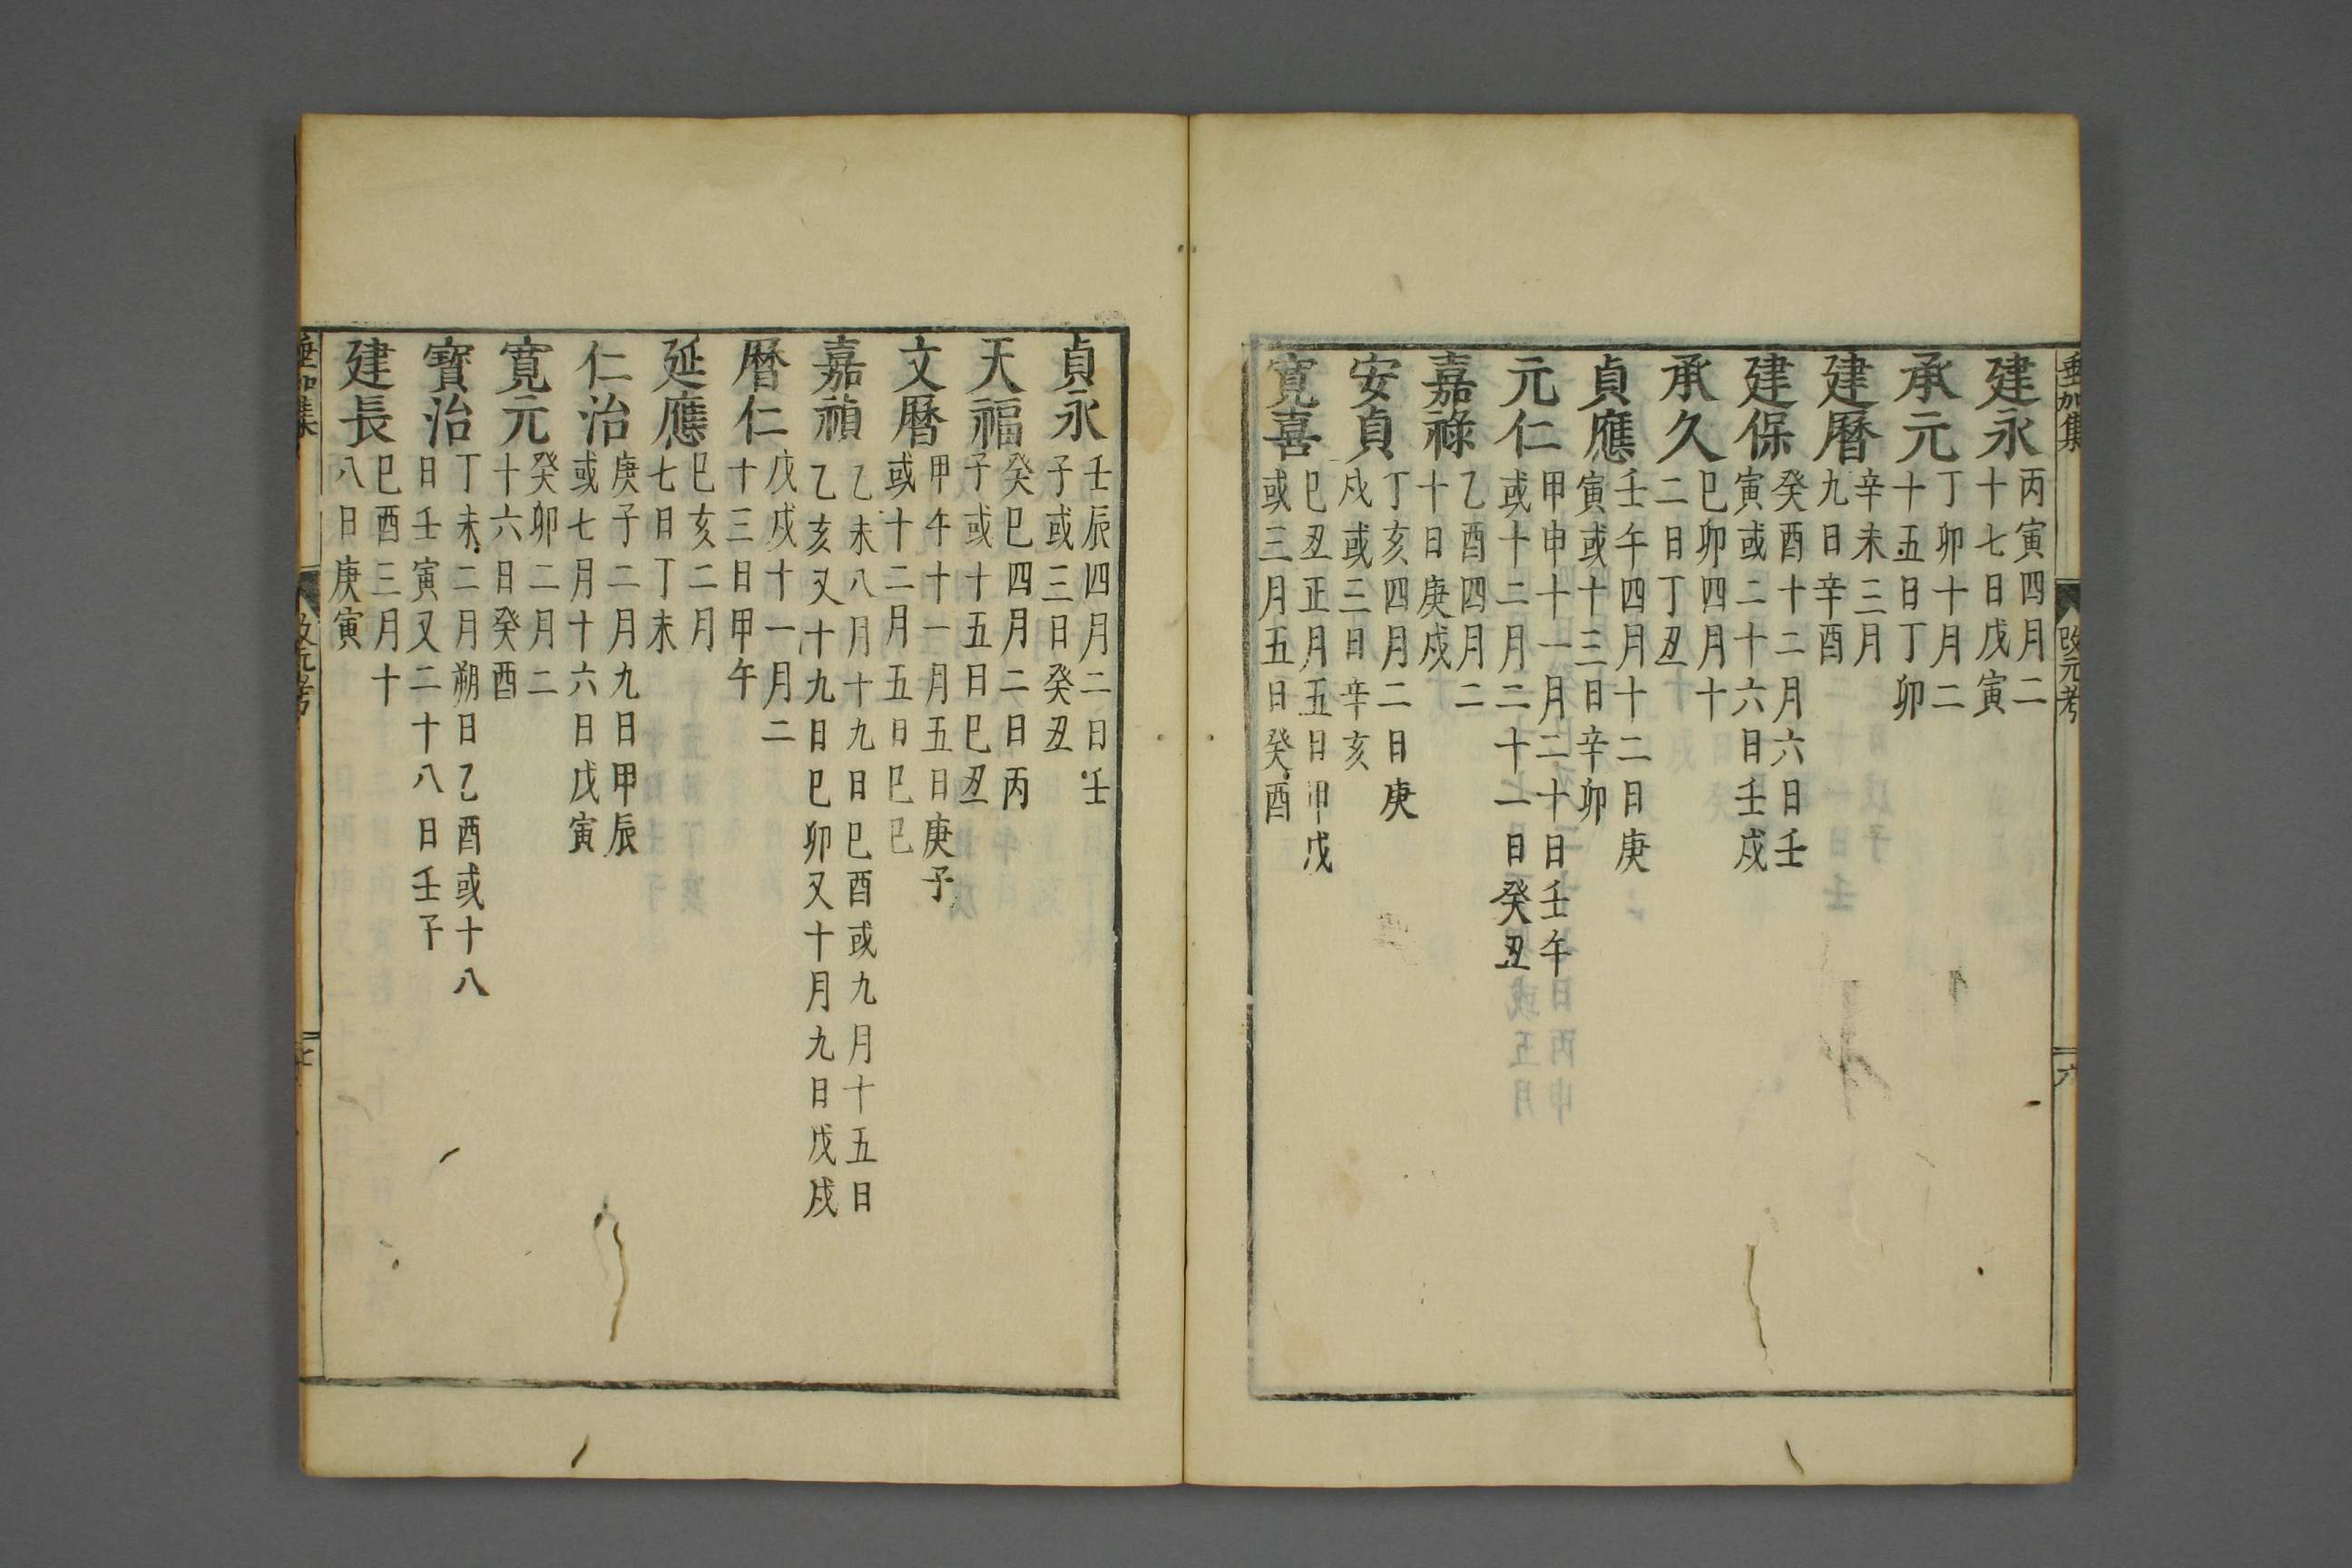 垂加集 改元考 六
建永 丙寅四月二十七日戊寅
承元 丁卯十月二十五日丁卯
建曆 辛未三月九日辛酉
建保 癸酉十二月六日壬寅或二十六日壬戌
承久 巳卯四月十二日丁丑
貞應 壬午四月十二日庚寅或十三日辛卯
元仁 甲申十一月二十日壬午或十二月二十一日癸丑
嘉祿 乙酉四月二十日庚戌
安貞 丁亥四月二日庚戌或三日辛亥
寬喜 巳丑正月五日甲戌或三月五日癸酉
貞永 壬辰四月二日壬子或三日癸丑
天福 癸巳四月二日丙子或十五日巳丑
文曆 甲午十一月五日庚子或十二月五日巳巳
嘉禎 乙未八月十九日巳酉或九月十五日乙亥又十九日巳卯又十月九日戊戌
曆仁 戊戌十一月二十三日甲午
延應 巳亥二月七日丁未
仁治 庚子二月九日甲辰或七月十六日戊寅
寬元 癸卯二月二十六日癸酉
寶治 丁未二月朔日乙酉或十八日壬寅又二十八日壬子
建長 巳酉三月十八日庚寅
垂加集 改元考 七